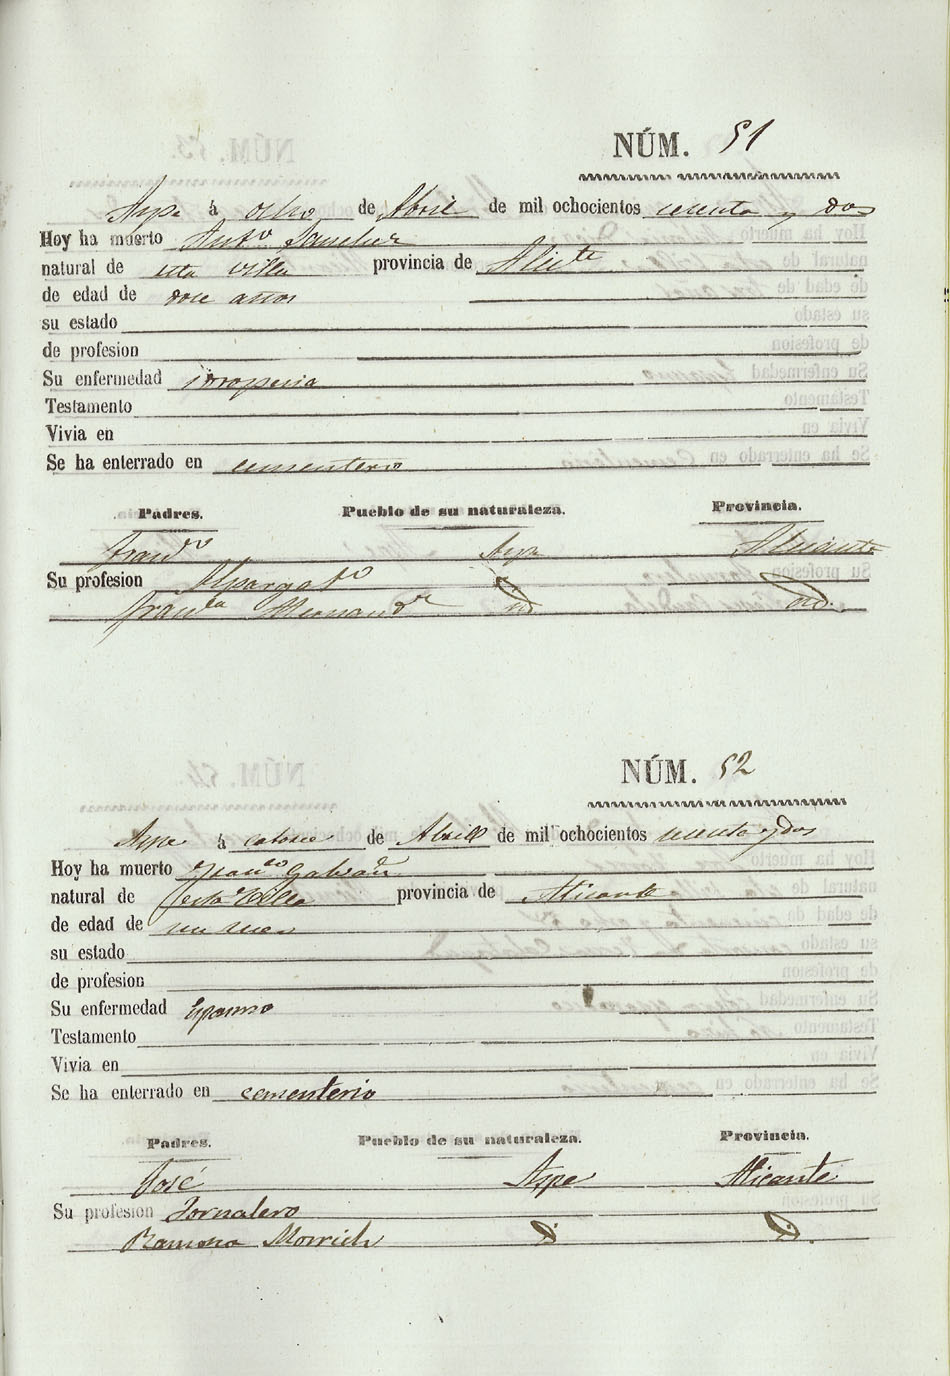 NÚM. 51
Aspe á ocho de Abril de mil ochocientos sesenta y dos
Hoy ha muerto Ant.º Sanchez
natural de esta villa provincia de Alic.te
de edad de doce años
su estado
de profesion
Su enfermedad
Testamento
Vivia en
Se ha enterrado en cementerio
Padres. Pueblo de su naturaleza. Provincia.
Fran.co Aspe Alicante
Su profesion Alpargat.ro
Fran.ca Hernand.z id id.
NÚM. 52
Aspe á catorce de Abril de mil ochocientos sesenta y dos
Hoy ha muerto Fran.co Galvañ
natural de esta Villa provincia de Alicante
de edad de un mes
su estado
de profesion
Su enfermedad Espasmo
Testamento
Vivia en
Se ha enterrado en cementerio
Padres. Pueblo de su naturaleza. Provincia.
José Aspe Alicante
Su profesion Jornalero
Ramona